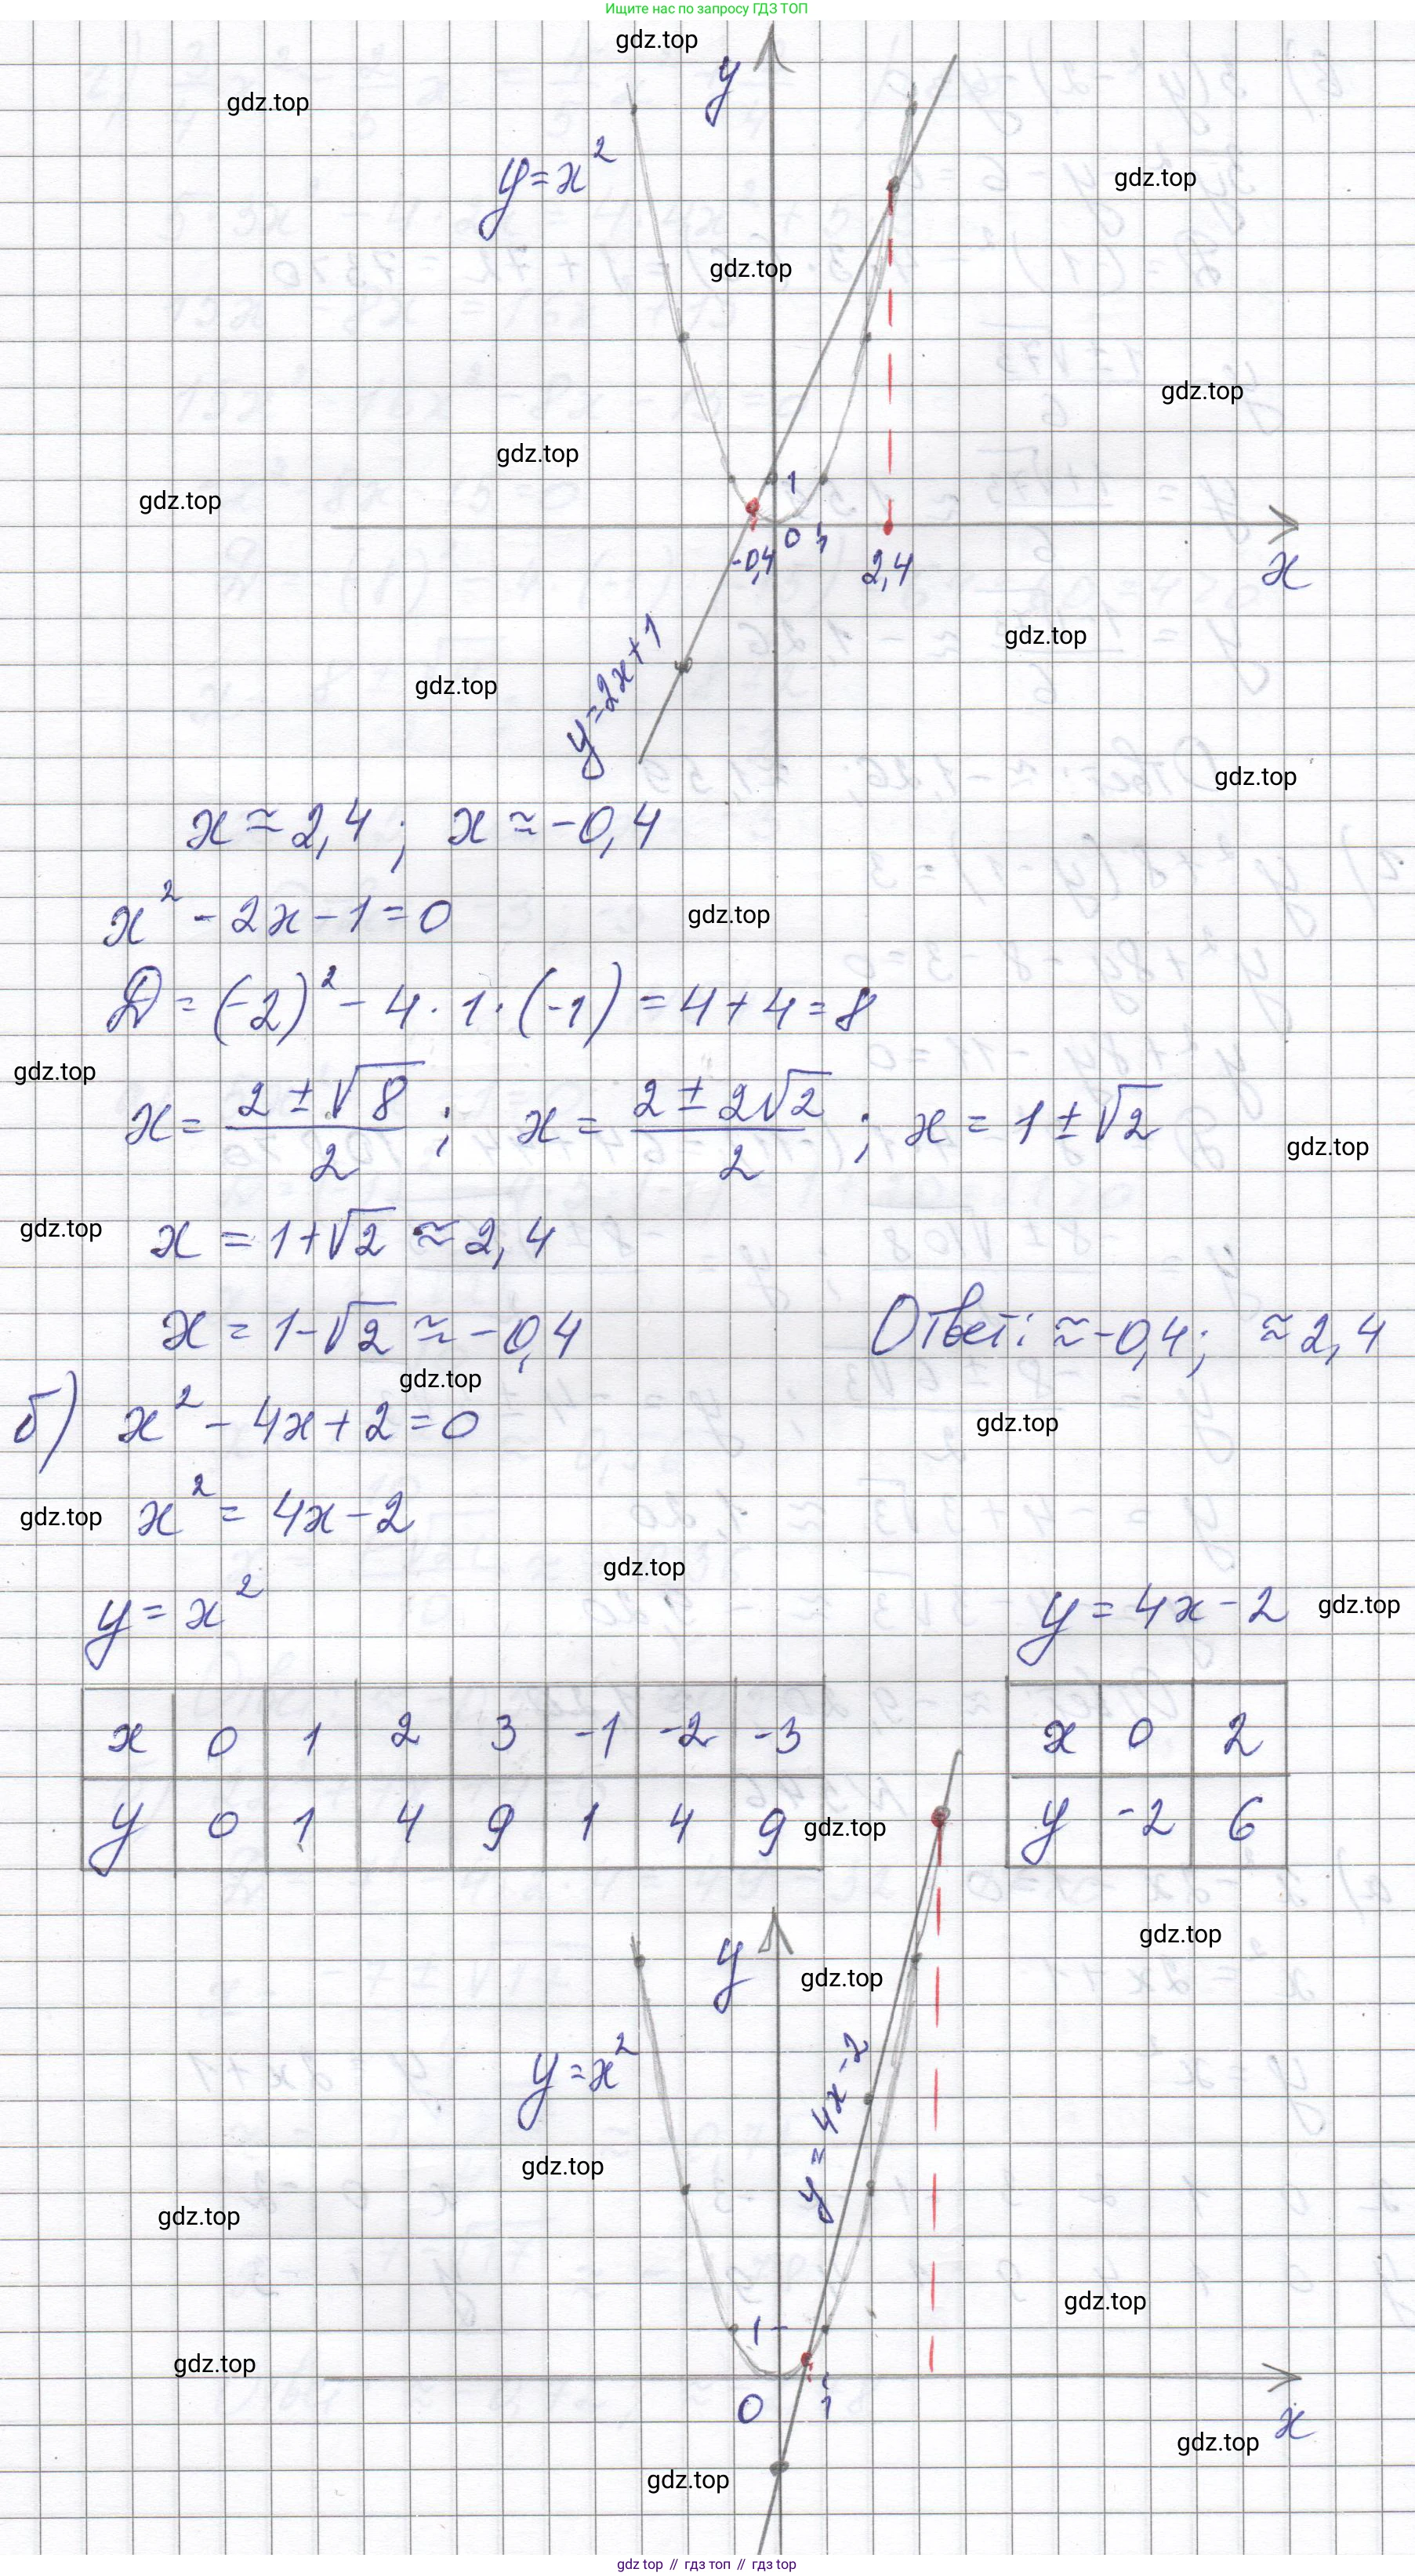 Ищите нас по запросу ГДЗ ТОП
gdz.top
y
gdz.top
y=x²
gdz.top
gdz.top
gdz.top
gdz.top
gdz.top
1
0 1
-0,4
2,4
x
gdz.top
y=2x+1
gdz.top
gdz.top
x≈2,4; x≈-0,4
x²-2x-1=0
gdz.top
D=(-2)²-4·1·(-1)=4+4=8
gdz.top
x=(2±√8)/2; x=(2±2√2)/2; x=1±√2
gdz.top
gdz.top
x=1+√2≈2,4
x=1-√2≈-0,4 Ответ: ≈-0,4; ≈2,4
gdz.top
б) x²-4x+2=0
gdz.top
gdz.top
x²=4x-2
gdz.top
y=x² y=4x-2
gdz.top
x 0 1 2 3 -1 -2 -3
y 0 1 4 9 1 4 9
x 0 2
y -2 6
gdz.top
gdz.top
y
gdz.top
y=x²
y=4x-2
gdz.top
gdz.top
gdz.top
1
gdz.top
0 1
x
gdz.top
gdz.top
gdz top // гдз топ // gdz top